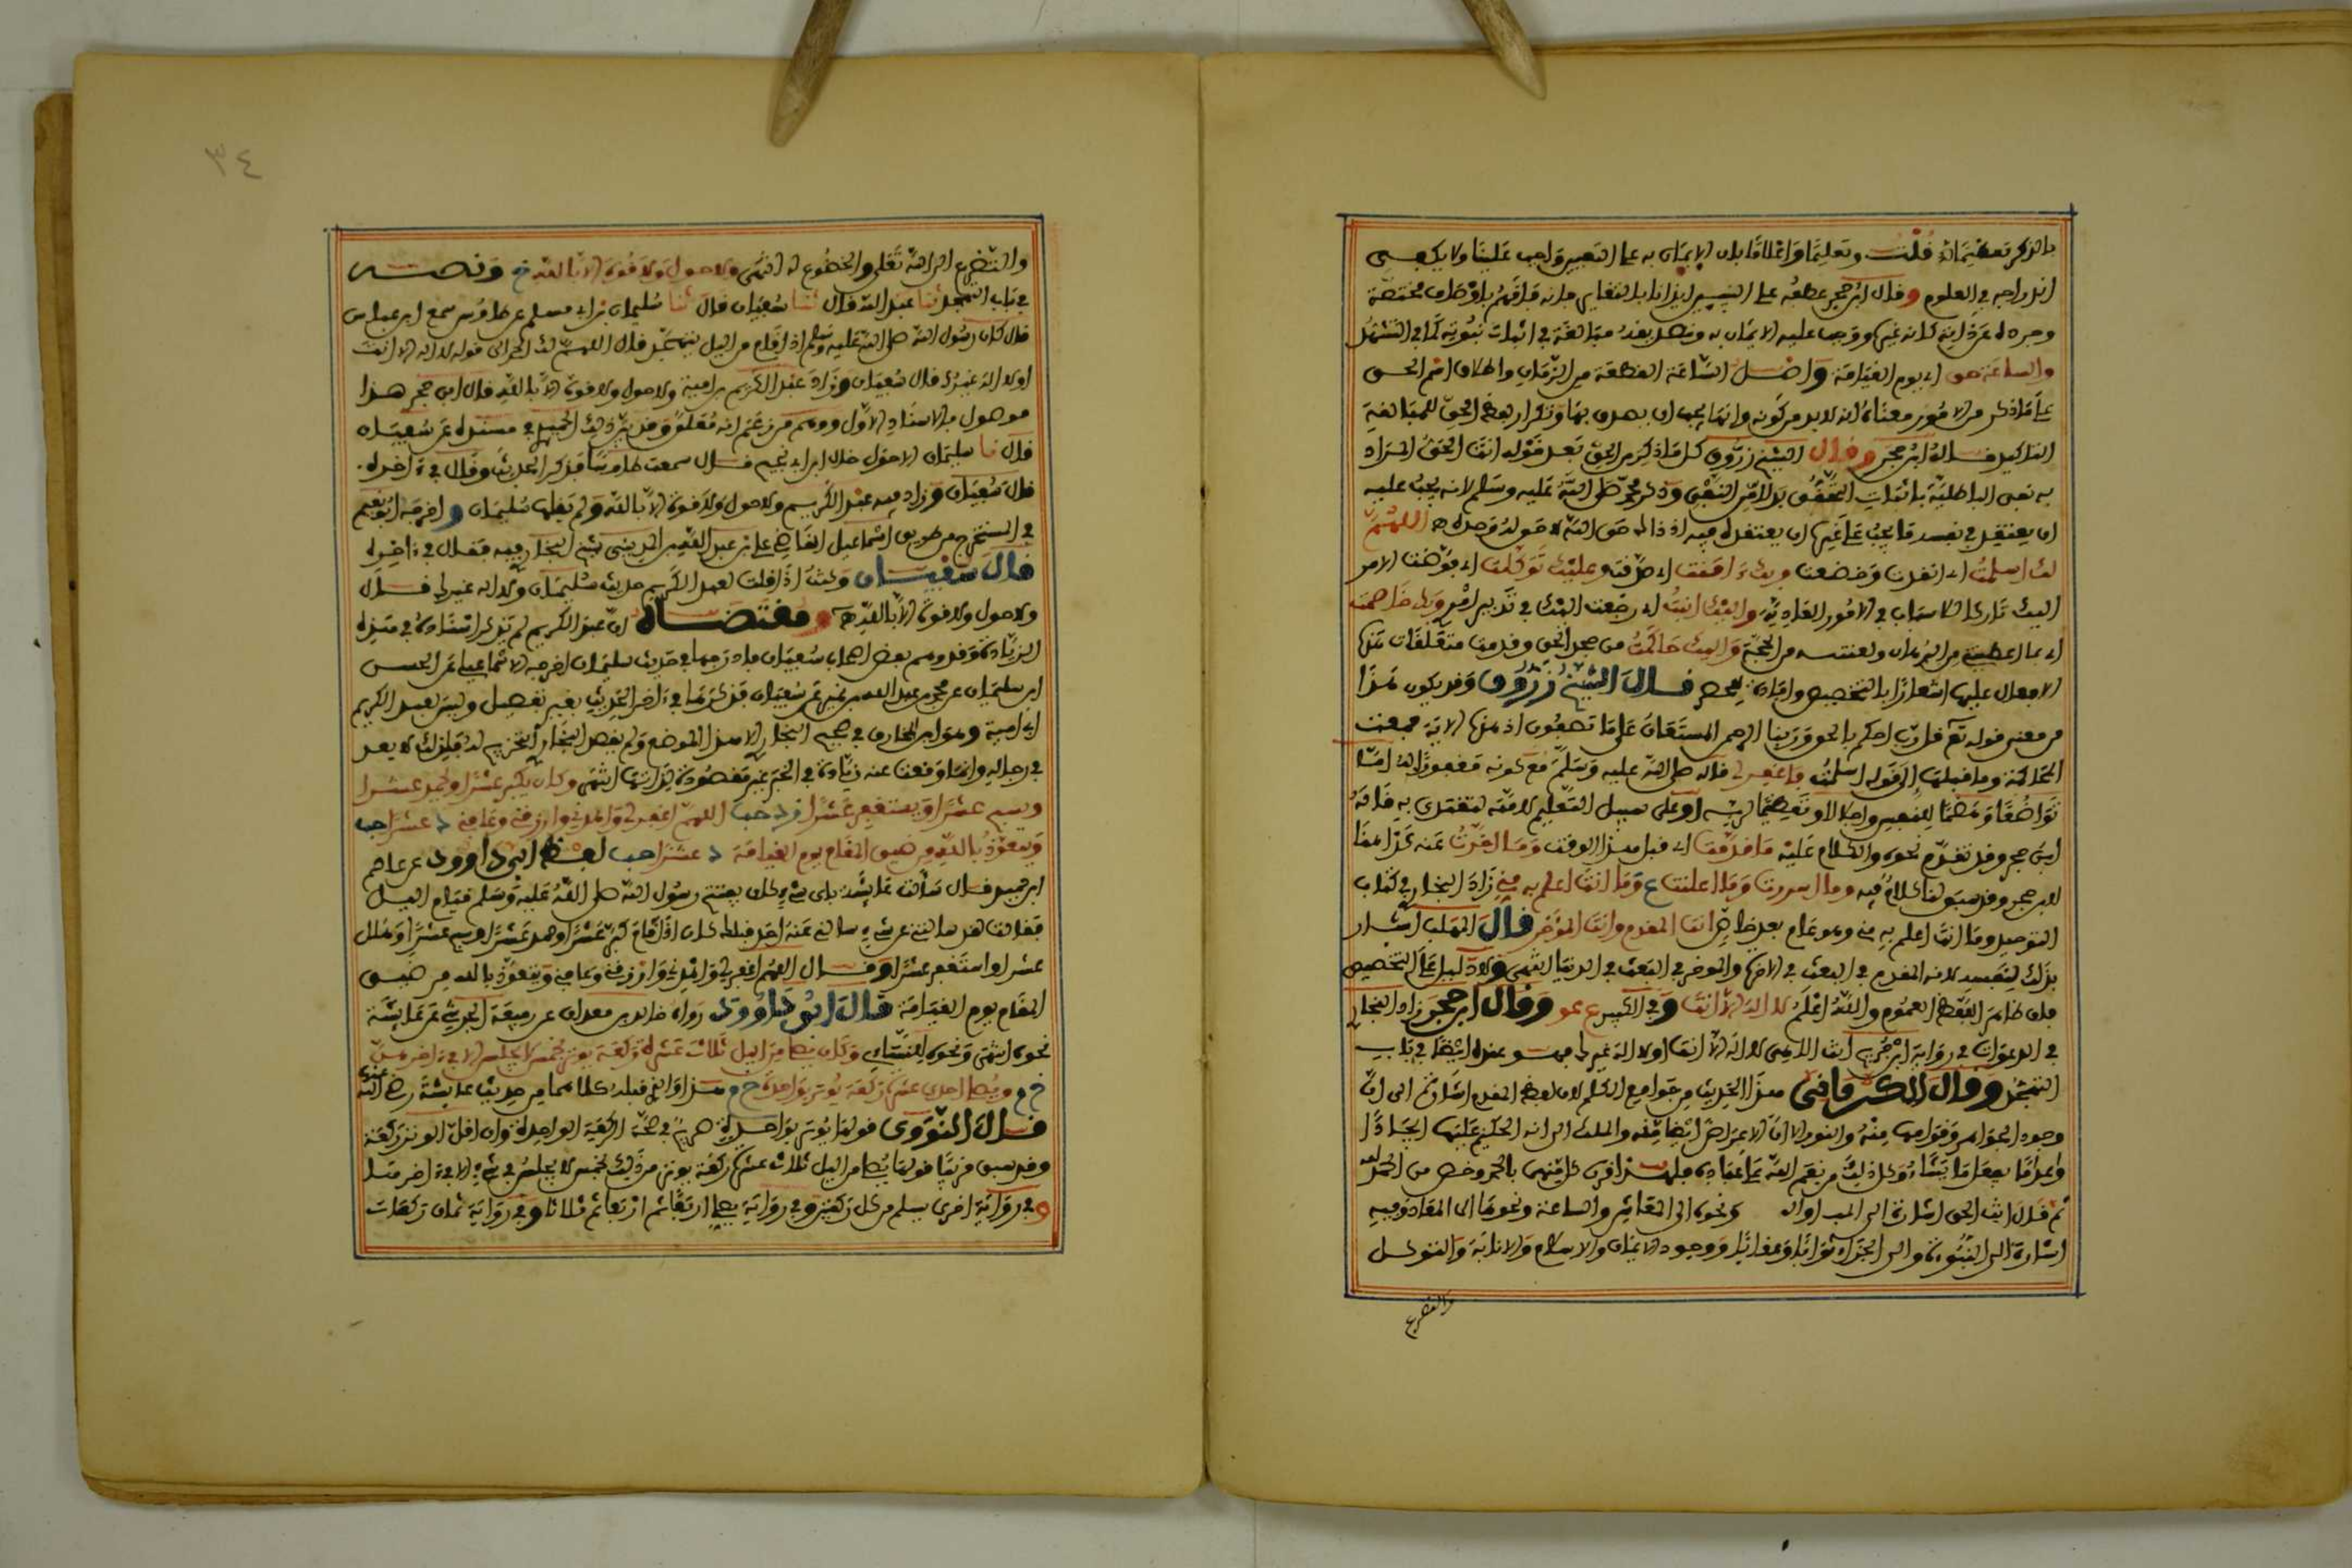 بالذكر تعظيما له قلت وتعليما واعلاما بان الايمان به على التعيين واجب علينا ولا يكفى
اندراجه في العلوم وقال ابن حجر عطفه على النبيين ايذانا بالتغاير فانه فاقهم باوصاف مختصة
وجرده عن ذاته كانه غيره ووجب عليه الايمان به وتصديقه مبالغة في اثبات نبوته كما في التشهد
والساعة حق اي يوم القيامة واصل الساعة القطعة من الزمان واطلاق اسم الحق
على ما ذكر من الامور معناه انه لا بد من كونه وانها يجب ان يصدق بها وتكرار لفظ الحق للمبالغة
التاكيد قاله ابن حجر وقال الشيخ زروق كل ما ذكر من الحق بعد قوله انت الحق المراد
به نفي الباطلية باثبات التحقق بلا امر النفي وذكر محمد صلى الله عليه وسلم لانه يجب عليه
ان يعتقد في نفسه ما يجب على غيره ان يعتقده فيه اذ ذاك حق الله لا حق له وحده اللهم
لك اسلمت اي انقدت وخضعت وبك ءامنت اي صدقت وعليك توكلت اي فوضت الامر
اليك تاركا الاسباب في الامور العادية واليك انبت اي رجعت اليك في تدبير امرى وبك خاصمت
اي بما اعطيتني من البرهان ولقنتني من الحجة واليك حاكمت من جحد الحق وقدمت متعلقات هذه
الافعال عليها اشعارا بالتخصيص وافادة للحصر قال الشيخ زروق وقد يكون هذا
من معنى قوله تع قل رب احكم بالحق وربنا الرحمن المستعان على ما تصفون اذ هذه الاية جمعت
المحاكمة وما قبلها الى قوله اسلمت فاغفر لي قاله صلى الله عليه وسلم مع كونه مغفورا له اما
تواضعا وهضما للنفس واجلالا وتعظيما لربه او على سبيل التعليم لامته لتقتدى به قاله
ابن حجر وقد تقدم نحوه والكلام عليه ما قدمت اي قبل هذا الوقت وما اخرت عنه كذا هنا
لابن حجر وقد سبق لنا كلام فيه وما اسررت وما اعلنت ع وما انت اعلم به مني زاد البخارى في كتاب
التوحيد وما انت اعلم به مني وهو عام بعد خاص انت المقدم وانت المؤخر قال المهلب اشار
بذلك لنفسه لانه المقدم في البعث في الاخرة والمؤخر في البعث في الدنيا انتهى ولا دليل على التخصيص
فان ظاهر اللفظ العموم والله اعلم لا اله الا انت وفي الكبير ع عو وقال ابن حجر زاد البخارى
في الدعوات في رواية ابن جريج انت الاهي لا اله الا انت او لا اله غيرك فهو عنده ايضا في باب
التهجد وقال الكرماني هذا الحديث من جوامع الكلم لان لفظ القيم اشارة الى ان
وجود الجواهر وقوامها منه والنور الا ان الاعراض ايضا منه والملك الى انه الحاكم عليها ايجادا
واعداما يفعل ما يشاء وكل ذلك من نعم الله على عباده فلهذا قرن كلا منها بالحمد وخص من الحمد له
ثم قال انت الحق اشارة الى المبدا وال ونحوه الى المعاش والساعة ونحوها الى المعاد وفيه
اشارة الى النبوة والى الجزاء ثوابا وعقابا ووجود الايمان والاسلام والانابة والتوكل
والتضرع
٣٤
والتضرع الى الله تعلى والخضوع له انتهى ولا حول ولا قوة الا بالله خ ونصه
في باب التهجد ثنا عبد الله قال ثنا سفيان قال ثنا سليمان بن ابي مسلم عن طاوس سمع ابن عباس
قال كان رسول الله صلى الله عليه وسلم اذا قام من اليل يتهجد قال اللهم لك الحمد الى قوله لا اله الا انت
او لا اله غيرك قال سفيان وزاد عبد الكريم ابو امية ولا حول ولا قوة الا بالله قال ابن حجر هذا
موصول بالاسناد الاول ووهم من زعم انه معلق وقد بين ذلك الحميدي في مسنده عن سفيان
قال نا سليمان الاحول خال ابن ابي نجيح قال سمعت طاوسا فذكر الحديث وقال في ءاخره
قال سفيان وزاد فيه عبد الكريم ولا حول ولا قوة الا بالله ولم يقلها سليمان واخرجه ابو نعيم
في المستخرج من طريق اسماعيل القاضي على بن عبد الله المديني شيخ البخارى فيه فقال في ءاخره
قال سفيان وكنت اذا قلت لعبد الكريم حديث سليمان ولا اله غيرك قال
ولا حول ولا قوة الا بالله ومقتضاه ان عبد الكريم لم يذكر اسناده في هذه
الزيادة وقد وهم بعض اصحاب سفيان فادرجها في حديث سليمان اخرجه الاسماعيلى عن الحسن
ابن سفيان عن محمد بن عبد الله بن نمير عن سفيان فذكرها في ءاخر الحديث بغير تفصيل وليس لعبد الكريم
ابي امية وهو ابن المخارق في صحيح البخارى الا هذا الموضع ولم يقصد البخارى التخريج له فلذلك لا يعد
في رجاله وانما وقعت عنه زيادة في الخبر غير مقصودة لذاتها انتهى وكان يكبر عشرا ويحمد عشرا
ويسبح عشرا ويستغفر عشرا د حب اللهم اغفر لي واهدني وارزقني وعافني د عشرا حب
ويتعوذ بالله من ضيق المقام يوم القيامة د عشرا حب لفظ ابي داوود عن عاصم
ابن حميد قال سألت عايشة باي شيء كان يفتتح رسول الله صلى الله عليه وسلم قيام اليل
فقالت لقد سالتني عن شيء ما سالني عنه احد قبلك كان اذا قام كبر عشرا وحمد عشرا وسبح عشرا وهلل
عشرا واستغفر عشرا وقال اللهم اغفر لي واهدني وارزقني وعافني ويتعوذ بالله من ضيق
المقام يوم القيامة قال ابو داوود رواه خالد بن معدان عن ربيعة الجرشي عن عايشة
نحوه انتهى ونحوه للنساءي وكان يصلي من اليل ثلاث عشرة ركعة يوتر بخمس لا يجلس الا في ءاخرهن
خ م ويصلي احدى عشرة ركعة يوتر بواحدة خ م هذا والذي قبله كلاهما من حديث عايشة رضي الله عنها
قال النووي قولها يوتر بواحدة صريح في صحة الركعة الواحدة وان اقل الوتر ركعة
وقد سبق قريبا قولها يصلي من اليل ثلاث عشرة ركعة يوتر من ذلك بخمس لا يجلس في شيء الا في ءاخرها
وفي رواية اخرى يسلم من كل ركعتين وفي رواية يصلي اربعا ثم اربعا ثم ثلاثا وفي رواية ثمان ركعات